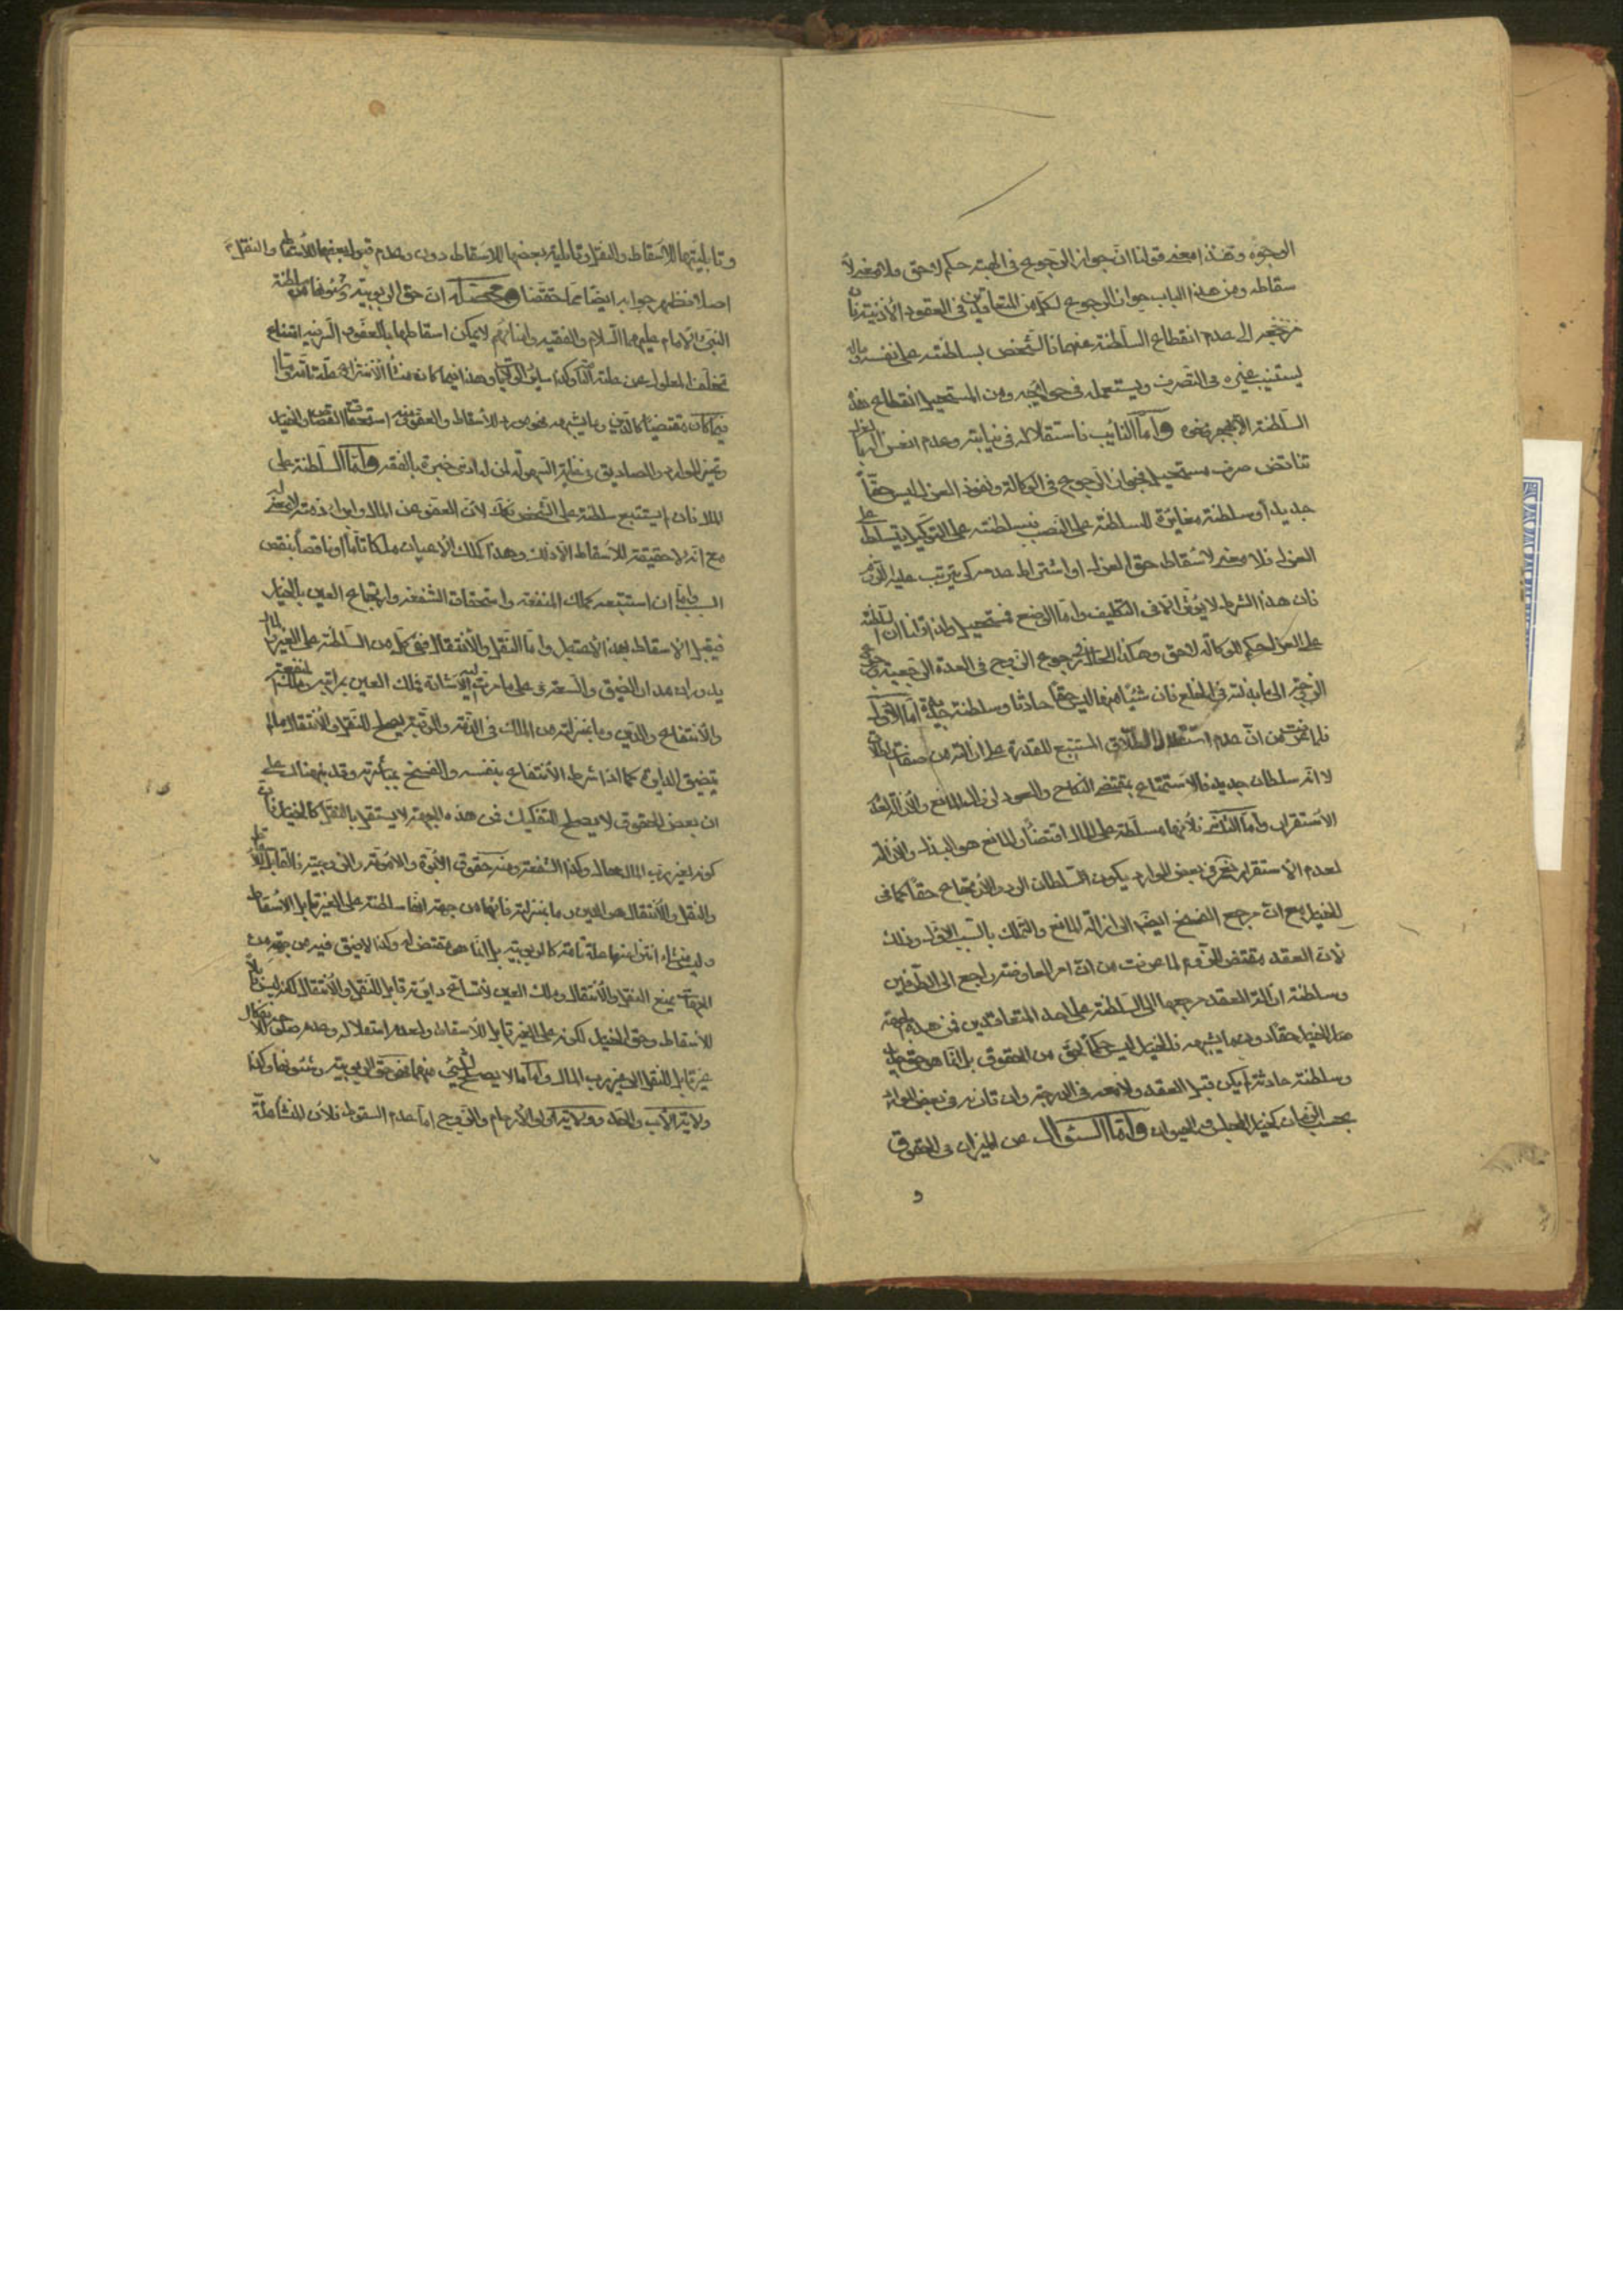 الوجوه وهذا معنى قولنا انّ جواز الرجوع فى الهبة حكم لا حق ولا معنى لا
سقاطه ومن هذا الباب جواز الرجوع لكل من المتعاقدين فى العقود الأذنيّة فان
مرجعه الى عدم انقطاع السلطنة عنهما فالشخص بسلطنته على نفسه وماله
يستنيب غيره فى التصرف ويستعمله فى حوائجه ومن المستحيل انقطاع هذه
السلطنة وامّا النايب فاستقلاله فى نيابته وعدم
تناقض صرف مستحيل فجواز الرجوع فى الوكالة ونفوذ العزل ليس حقّاً
جديداً وسلطنة مغايرة للسلطنة على النصب فبسلطنته على التوكيل يتسلط على
العزل فلا معنى لاسقاط حق العزل او اشتراط عدمه كى يترتب عليه
فان هذا الشرط لا يؤثر فى التكليف وامّا الوضع فمستحيل ولذا قلنا انّ السلطنة
على العزل حكم للوكالة لا حق وهكذا الحال فى رجوع الزوج فى العدة الرجعية
الى ما بذلته فى الخلع فان شيئاً منها ليس حقّاً حادثا وسلطنة جديدة امّا الأوّل
فلما عرفت من انّ عدم استقلال الطلاق المستتبع للقدرة على ازالته من صفات الطلاق
لا انّه سلطان جديد فالاستمتاع بمقتضى النكاح والعود لزوال المانع والازالة لعدم
الاستقرار وامّا الثانى فلأنها مسلّطة على المال اقتضاء والمانع هو البذل والازالة
لعدم الاستقرار نعم فى بعض الموارد يكون السلطان الرد والارتجاع حقّاً كما فى
الخيار مع انّ مرجع الفسخ ايضا الى ازالة المانع والتملك بالسبب الاوّل وذلك
لانّ العقد مقتض للّزوم لما عرفت من انّ امر المعاوضة راجع الى الطرفين
وسلطنة ازالة العقد مرجعها الى السلطنة على احد المتعاقدين فمن هذه الجهة
صار الخيار حقّا دون ما يشبهه فالخيار ليس حكماً من الحقوق بل انّما هو حق
وسلطنة حادثة لم يكن قبل العقد ولا بعده فى الدرجة وان قارنه فى بعض الموارد
بحسب الزمان كخيار المجلس والحيوان وامّا السؤال عن الميزان فى الحقوق
و
وقابليّتها للاسقاط والنقل وقابلية بعضها للاسقاط دونه وعدم قبول بعضها للاسقاط والنقل
اصلا فظهر جوابه ايضا ممّا حققنا ومحصّله انّ حق الربوبيّة وشئونها من سلطنة
النبى والامام عليهما السلام والفقيه وامنائهم لا يمكن اسقاطها بالعفو امتناع
تخلف المعلول عن علته التامة وهذا فيما كان منشأ الانتزاع علة تامّة وامّا
فيما كان مقتضيا كالدّين وما يشبهه من الاسقاط والعفو ومنه استحقاق القصاص والخيار
وتميز الموارد والمصاديق فى غاية السهولة لمن له ادنى خبرة بالفقه وامّا السلطنة على
المال فان استتبع سلطنة على الشخص فكك لانّ العفو عن المال وابراء ذمته لا معنى له
مع انّه لا حقيقة للاسقاط الّا ذلك وهذا كملك الاعيان ملكا تامّا او ناقصاً بنقص
السبب وامّا ان استتبعه كملك المنفعة واستحقاق الشفعة وارتجاع العين بالخيار
فيقبل الاسقاط بهذا الاعتبار وامّا النقل والانتقال ففى كل من السلطنة على الغير والمال
يدوران مدار الضيق والسعة فى على ما مرّت اليه الاشارة فملك العين بمراتبه وملك المنفعة
والانتفاع والدّين وما بمنزلته من الملك فى الذمّة والرقبة يصلح للنقل والانتقال ما لم
يتضيق الدائرة كما اذا شرط الانتفاع بنفسه والفسخ بمباشرته وقد نبهناك على
ان بعض الحقوق لا يصلح للتفكيك فمن هذه الجهة لا يستقل بالنقل كالخيار فان
كونه لغير ربّ المال محال وكذا الشفعة ومنه حقوق الابوّة والامومة والزوجيّة فالقابل للاسقاط
والنقل والانتقال هو الدين وما بمنزلته فانّها من جهة انّها سلطنة على الغير قابل للاسقاط
وليس منشاء انتزاعها علة تامّة كالربوبية بل انّما هو مقتض له وكذا لا ضيق فيه من جهة من
الجهات يمنع النقل والانتقال وملك العين لاتّساع دائرته قابل للنقل والانتقال لكنه ليس قابلا
للأسقاط وحق الخيار لكونه على الغير قابل للاسقاط ولعدم استقلاله وعدم صلوحه للاستقلال
غير قابل للنقل الى غير رب المال وامّا ما لا يصلح لشىء منهما فهو حق الربوبيّة وشئونها وكذا
ولاية الاب والجد وولاية اولى الأرحام والزوج امّا عدم السقوط فلأن المنشأ علّة